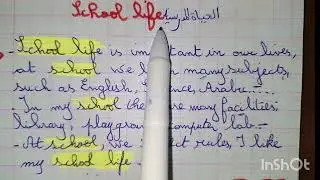 School life الحياة المدرسية
- School life is important in our lives,
at school we learn many subjects,
such as English, Science, Arabic....
- In my school there are many facilities;
library, playground, computer lab.
- At school, we respect rules, I like
my school life.
InShOt